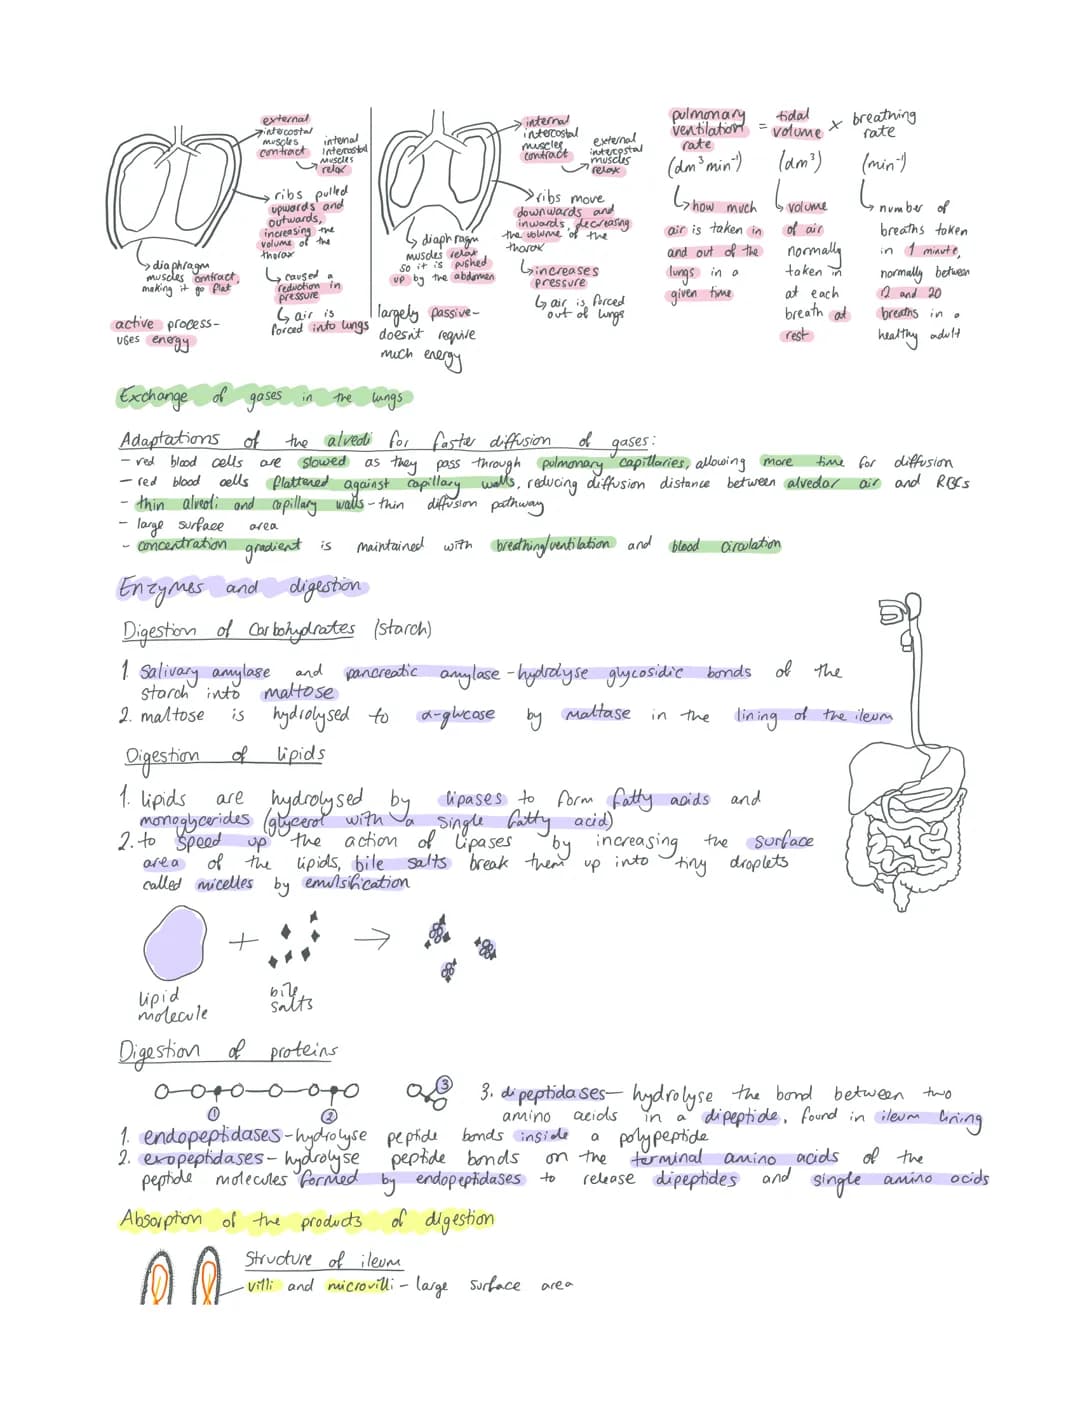 external
intercostal
muscles
contract
internal
intercostal
muscles
relax
ribs pulled
upwards and
outwards,
increasing the
volume of the
thorax
caused a
reduction in
pressure
air is
forced into lungs
diaphragm
muscles contract,
making it go flat
active process-
uses energy
internal
intercostal
muscles
contract
external
intercostal
muscles
relax
ribs move
downwards and
inwards, decreasing
the volume of the
thorax
increases
pressure
air is forced
out of lungs
diaphragm
muscles relax
so it is pushed
up by the abdomen
largely passive-
doesn't require
much energy
pulmonary
ventilation
rate
(dm³ min⁻¹)
= tidal
volume
(dm³)
× breathing
rate
(min⁻¹)
how much
air is taken in
and out of the
lungs in a
given time
volume
of air
normally
taken in
at each
breath at
rest
number of
breaths taken
in 1 minute,
normally between
12 and 20
breaths in a
healthy adult
Exchange of gases in the lungs
Adaptations of the alveoli for faster diffusion of gases:
- red blood cells are slowed as they pass through pulmonary capillaries, allowing more time for diffusion
- red blood cells flattened against capillary walls, reducing diffusion distance between alveolar air and RBCs
- thin alveoli and capillary walls - thin diffusion pathway
- large surface area
- concentration gradient is maintained with breathing/ventilation and blood circulation
Enzymes and digestion
Digestion of Carbohydrates (starch)
1. Salivary amylase and pancreatic amylase - hydrolyse glycosidic bonds of the
starch into maltose
2. maltose is hydrolysed to α-glucose by maltase in the lining of the ileum
Digestion of lipids
1. lipids are hydrolysed by lipases to form fatty acids and
monoglycerides (glycerol with a single fatty acid)
2. to speed up the action of lipases by increasing the surface
area of the lipids, bile salts break them up into tiny droplets
called micelles by emulsification
lipid
molecule
+
bile
salts
Digestion of proteins
1
2
3
3. dipeptidases- hydrolyse the bond between two
amino acids in a dipeptide, found in ileum lining
1. endopeptidases - hydrolyse peptide bonds inside a polypeptide
2. exopeptidases - hydrolyse peptide bonds on the terminal amino acids of the
peptide molecules formed by endopeptidases to release dipeptides and single amino acids
Absorption of the products of digestion
Structure of ileum
villi and microvilli - large surface area